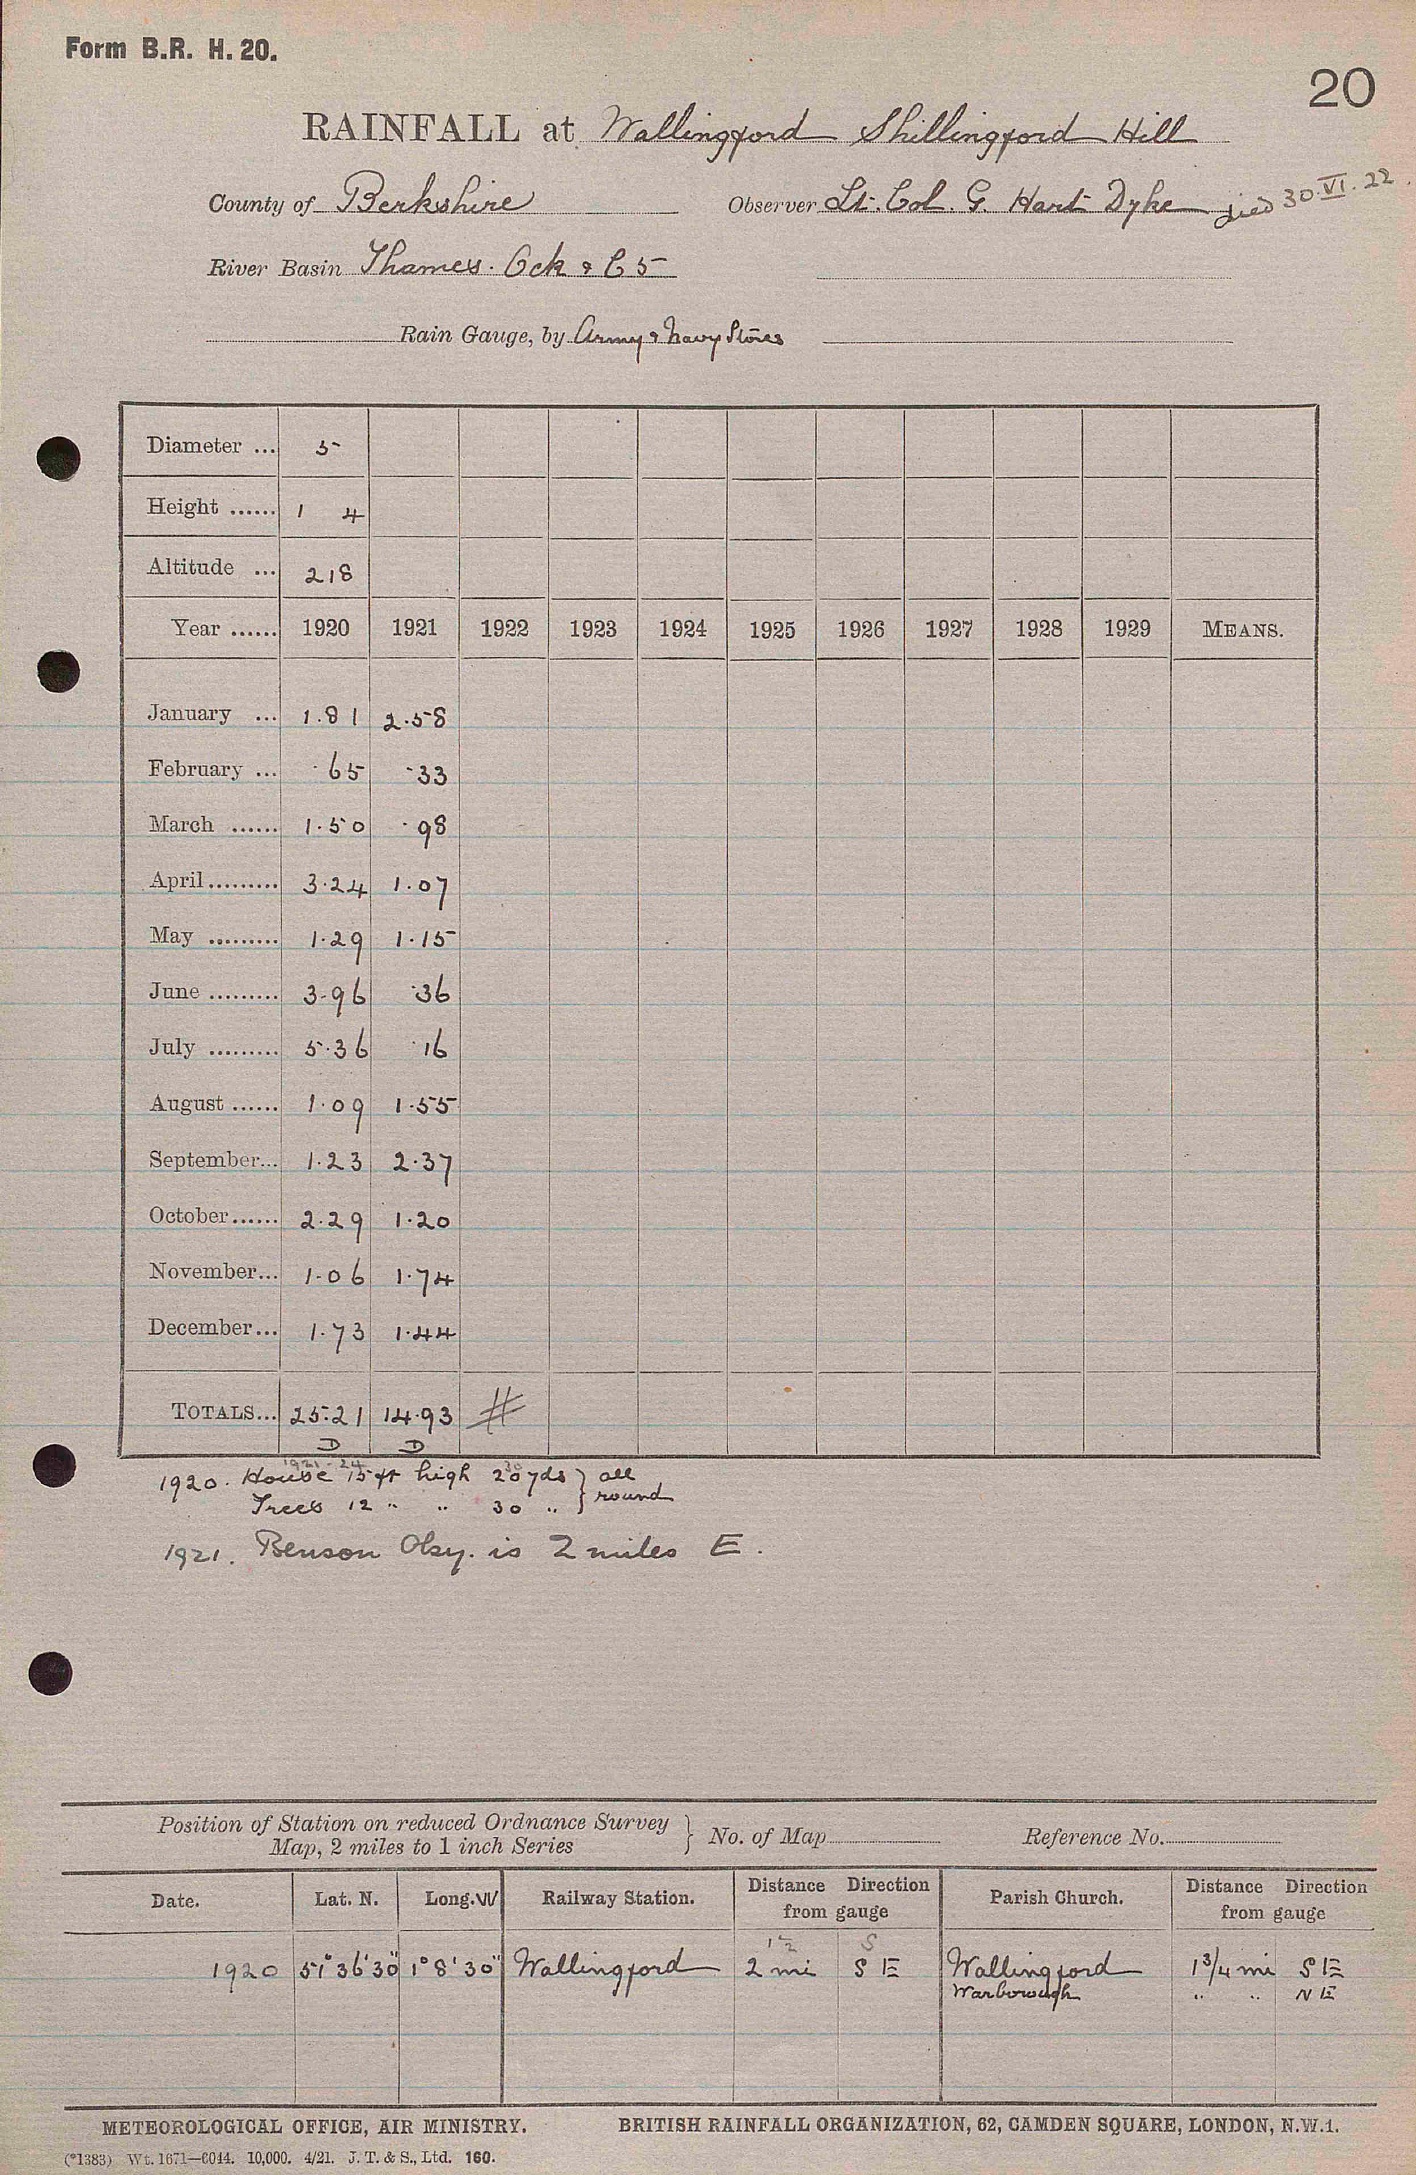 Form B.R. H. 20.
20
RAINFALL at Wallingford Shillingford Hill
County of Berkshire Observer Lt. Col. G. Hart Dyke died 30.VI.22.
River Basin Thames. Ock & C5
Rain Gauge, by Army & Navy Stores
Diameter ... 5
Height ...... 1 4
Altitude ... 218
Year ...... 1920 1921 1922 1923 1924 1925 1926 1927 1928 1929 MEANS.
January ... 1.81 2.58
February ... .65 .33
March ...... 1.50 .98
April......... 3.24 1.07
May ......... 1.29 1.15
June ......... 3.96 .36
July ......... 5.36 .16
August ...... 1.09 1.55
September... 1.23 2.37
October...... 2.29 1.20
November... 1.06 1.74
December... 1.73 1.44
TOTALS... 25.21 14.93 #
D D
1920. House 15 ft high 20 yds } all
Trees 12 " " 30 " } round
1921. Benson Obsy. is 2 miles E.
Position of Station on reduced Ordnance Survey
Map, 2 miles to 1 inch Series } No. of Map Reference No.
Date. Lat. N. Long. W Railway Station. Distance Direction from gauge Parish Church. Distance Direction from gauge
1½ S
1920 51° 36' 30" 1° 8' 30" Wallingford 2 mi S E Wallingford 1 3/4 mi S E
Warborough " " N E
METEOROLOGICAL OFFICE, AIR MINISTRY. BRITISH RAINFALL ORGANIZATION, 62, CAMDEN SQUARE, LONDON, N.W.1.
(*1383) Wt. 1671—6044. 10,000. 4/21. J. T. & S., Ltd. 160.